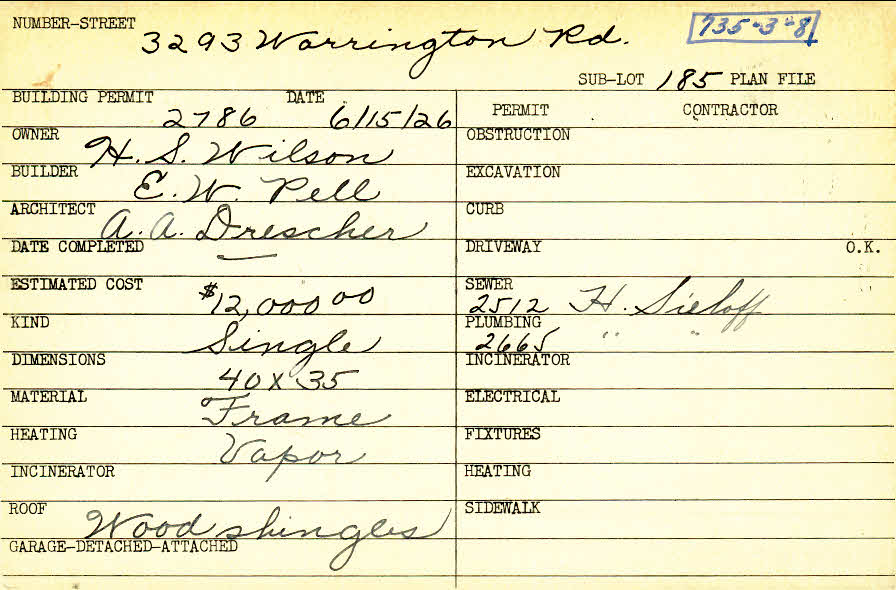 NUMBER-STREET 3293 Warrington Rd. 735-3-8
SUB-LOT 185 PLAN FILE
BUILDING PERMIT 2786 DATE 6/15/26
OWNER H. S. Wilson
BUILDER E. W. Pell
ARCHITECT A. A. Drescher
DATE COMPLETED —
ESTIMATED COST $12,000 00
KIND Single
DIMENSIONS 40 x 35
MATERIAL Frame
HEATING Vapor
INCINERATOR
ROOF Wood shingles
GARAGE-DETACHED-ATTACHED
PERMIT CONTRACTOR
OBSTRUCTION
EXCAVATION
CURB
DRIVEWAY O.K.
SEWER 2512 H. Sieloff
PLUMBING 2665 " "
INCINERATOR
ELECTRICAL
FIXTURES
HEATING
SIDEWALK